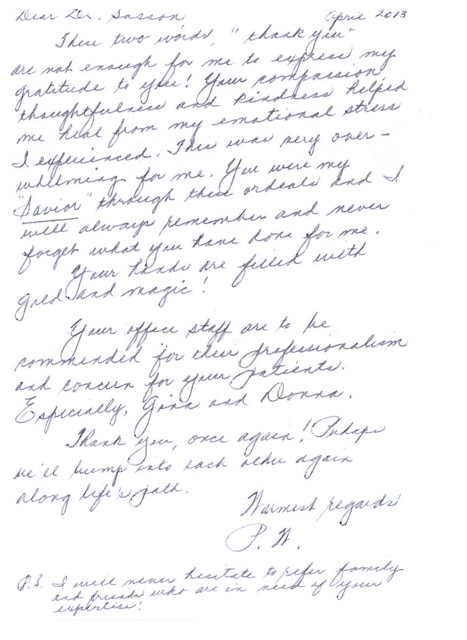 Dear Dr. Sasson April 2013
These two words, "thank you"
are not enough for me to express my
gratitude to you! Your compassion,
thoughtfulness and kindness helped
me heal from my emotional stress
I experienced. This was very over-
whelming for me. You were my
"Savior" through these ordeals and I
will always remember and never
forget what you have done for me.
Your hands are filled with
gold and magic!
Your office staff are to be
commended for their professionalism
and concern for your patients.
Especially, Gina and Donna.
Thank you, once again! Perhaps
we'll bump into each other again
along life's path.
Warmest regards
P. W.
P.S. I will never hesitate to refer family
and friends who are in need of your
expertise!